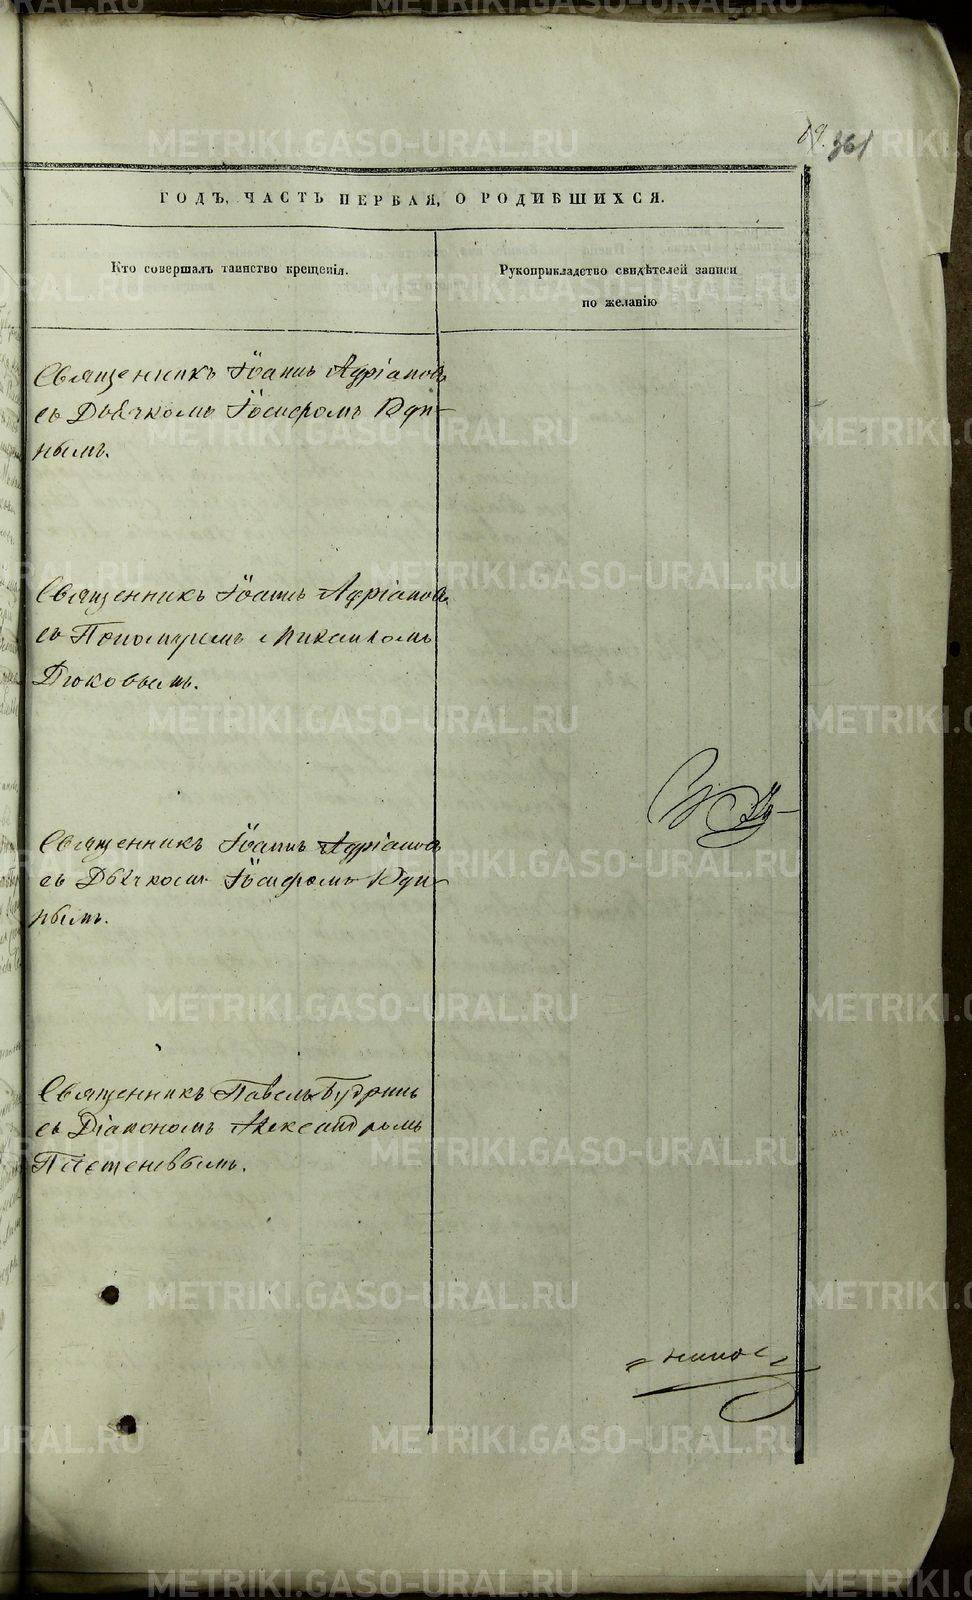 361
ГОДЪ, ЧАСТЬ ПЕРВАЯ, О РОДИВШИХСЯ.
Кто совершалъ таинство крещенія.
Рукоприкладство свидѣтелей записи
по желанію
Священникъ Іоаннъ Адріановъ
съ Дьячкомъ Іосифомъ Юди-
нымъ.
Священникъ Іоаннъ Адріановъ
съ Пономаремъ
Дюковымъ.
Священникъ Іоаннъ Адріановъ
съ Дьячкомъ Іосифомъ Юди-
нымъ.
Священникъ Павелъ Будринъ
съ Діакономъ Александромъ
METRIKI.GASO-URAL.RU